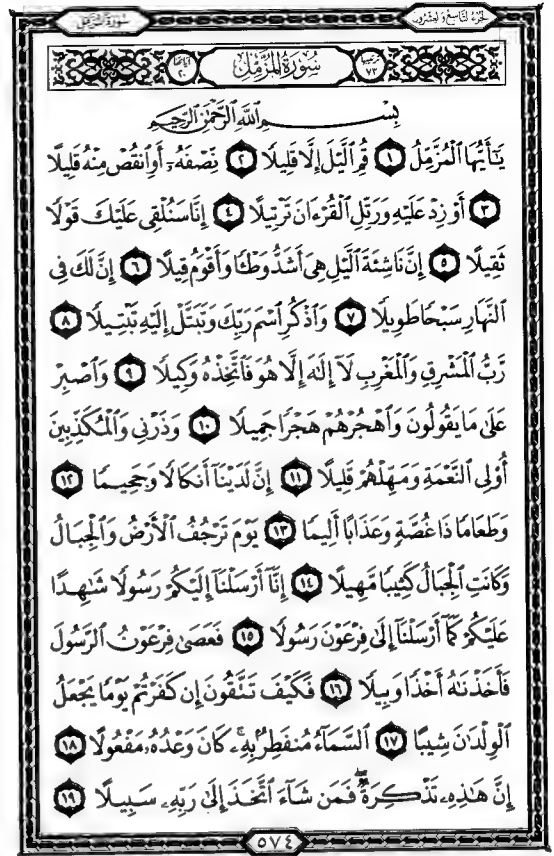 الجزء التاسع والعشرون سورة المزمل
ترتيبها ٧٣ سُورَةُ المُزَّمِّل آياتها ٢٠
بِسْمِ اللَّهِ الرَّحْمَٰنِ الرَّحِيمِ
يَٰٓأَيُّهَا ٱلْمُزَّمِّلُ ١ قُمِ ٱلَّيْلَ إِلَّا قَلِيلًا ٢ نِّصْفَهُۥٓ أَوِ ٱنقُصْ مِنْهُ قَلِيلًا
٣ أَوْ زِدْ عَلَيْهِ وَرَتِّلِ ٱلْقُرْءَانَ تَرْتِيلًا ٤ إِنَّا سَنُلْقِى عَلَيْكَ قَوْلًا
ثَقِيلًا ٥ إِنَّ نَاشِئَةَ ٱلَّيْلِ هِىَ أَشَدُّ وَطْـًٔا وَأَقْوَمُ قِيلًا ٦ إِنَّ لَكَ فِى
ٱلنَّهَارِ سَبْحًا طَوِيلًا ٧ وَٱذْكُرِ ٱسْمَ رَبِّكَ وَتَبَتَّلْ إِلَيْهِ تَبْتِيلًا ٨
رَّبُّ ٱلْمَشْرِقِ وَٱلْمَغْرِبِ لَآ إِلَٰهَ إِلَّا هُوَ فَٱتَّخِذْهُ وَكِيلًا ٩ وَٱصْبِرْ
عَلَىٰ مَا يَقُولُونَ وَٱهْجُرْهُمْ هَجْرًا جَمِيلًا ١٠ وَذَرْنِى وَٱلْمُكَذِّبِينَ
أُو۟لِى ٱلنَّعْمَةِ وَمَهِّلْهُمْ قَلِيلًا ١١ إِنَّ لَدَيْنَآ أَنكَالًا وَجَحِيمًا ١٢
وَطَعَامًا ذَا غُصَّةٍ وَعَذَابًا أَلِيمًا ١٣ يَوْمَ تَرْجُفُ ٱلْأَرْضُ وَٱلْجِبَالُ
وَكَانَتِ ٱلْجِبَالُ كَثِيبًا مَّهِيلًا ١٤ إِنَّآ أَرْسَلْنَآ إِلَيْكُمْ رَسُولًا شَٰهِدًا
عَلَيْكُمْ كَمَآ أَرْسَلْنَآ إِلَىٰ فِرْعَوْنَ رَسُولًا ١٥ فَعَصَىٰ فِرْعَوْنُ ٱلرَّسُولَ
فَأَخَذْنَٰهُ أَخْذًا وَبِيلًا ١٦ فَكَيْفَ تَتَّقُونَ إِن كَفَرْتُمْ يَوْمًا يَجْعَلُ
ٱلْوِلْدَٰنَ شِيبًا ١٧ ٱلسَّمَآءُ مُنفَطِرٌۢ بِهِۦ ۚ كَانَ وَعْدُهُۥ مَفْعُولًا ١٨
إِنَّ هَٰذِهِۦ تَذْكِرَةٌ ۖ فَمَن شَآءَ ٱتَّخَذَ إِلَىٰ رَبِّهِۦ سَبِيلًا ١٩
٥٧٤